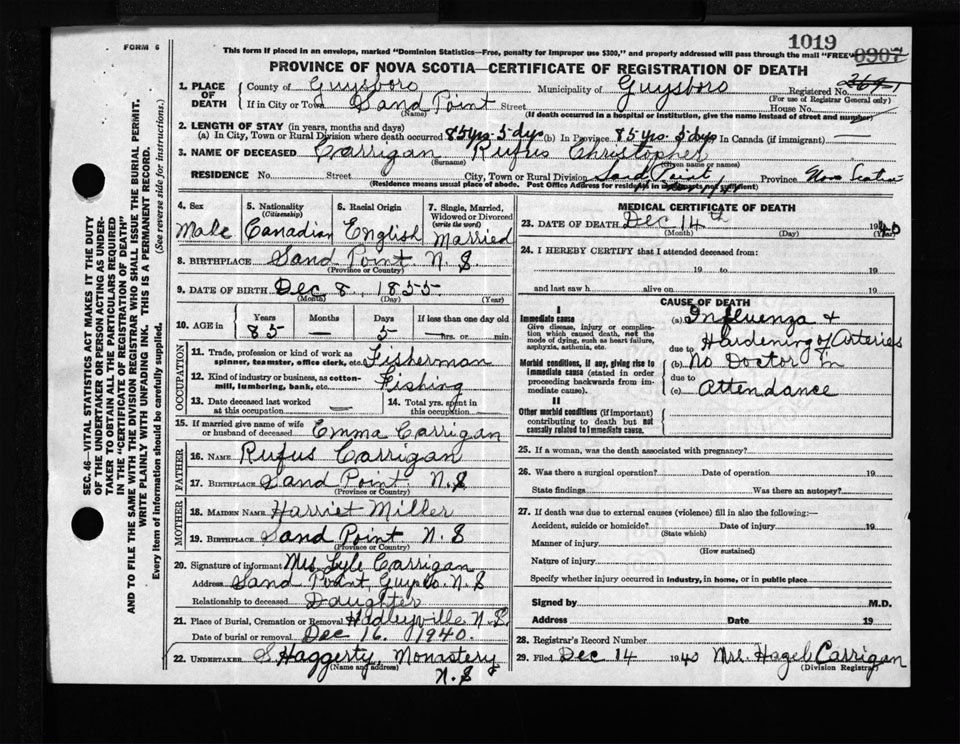 FORM 6
1019
This form if placed in an envelope, marked "Dominion Statistics—Free, penalty for improper use $300," and properly addressed will pass through the mail "FREE"
0907
PROVINCE OF NOVA SCOTIA—CERTIFICATE OF REGISTRATION OF DEATH
1. PLACE OF DEATH
County of Guysboro Municipality of Guysboro Registered No.
(For use of Registrar General only)
If in City or Town Sand Point Street House No.
(Name) (If death occurred in a hospital or institution, give the name instead of street and number)
2. LENGTH OF STAY (in years, months and days)
(a) In City, Town or Rural Division where death occurred 85 yrs. 5 dys (b) In Province 85 yrs. 5 dys In Canada (if immigrant)
3. NAME OF DECEASED Carrigan Rufus Christopher
(Surname) (Given name or names)
RESIDENCE No. Street City, Town or Rural Division Sand Point Province Nova Scotia
(Residence means usual place of abode. Post Office Address for residents in not sufficient)
4. Sex Male
5. Nationality (Citizenship) Canadian
6. Racial Origin English
7. Single, Married, Widowed or Divorced (write the word) Married
8. BIRTHPLACE Sand Point N.S.
(Province or Country)
9. DATE OF BIRTH Dec 8, 1855
(Month) (Day) (Year)
10. AGE in Years Months Days If less than one day old
85 — 5 — hrs. or min.
OCCUPATION
11. Trade, profession or kind of work as spinner, teamster, office clerk, etc. Fisherman
12. Kind of industry or business, as cotton-mill, lumbering, bank, etc. Fishing
13. Date deceased last worked at this occupation —
14. Total yrs. spent in this occupation
15. If married give name of wife or husband of deceased Emma Carrigan
FATHER
16. NAME Rufus Carrigan
17. BIRTHPLACE Sand Point N.S
(Province or Country)
MOTHER
18. MAIDEN NAME Harriet Miller
19. BIRTHPLACE Sand Point N.S
(Province or Country)
20. Signature of informant Mrs Lyle Carrigan
Address Sand Point, Guys Co. N.S
Relationship to deceased Daughter
21. Place of Burial, Cremation or Removal Hadleyville N.S.
Date of burial or removal Dec 16. 1940.
22. UNDERTAKER S. Haggerty, Monastery
(Name and address) N.S
MEDICAL CERTIFICATE OF DEATH
23. DATE OF DEATH Dec 14th 1940
(Month) (Day) (Year)
24. I HEREBY CERTIFY that I attended deceased from:
19 to 19
and last saw h alive on 19
CAUSE OF DEATH
I
Immediate cause
Give disease, injury or complication which caused death, not the mode of dying, such as heart failure, asphyxia, asthenia, etc.
(a) Influenza +
due to Hardening of Arteries
Morbid conditions, if any, giving rise to immediate cause (stated in order proceeding backwards from immediate cause).
(b) No Doctor in
due to
(c) Attendance
II
Other morbid conditions (if important) contributing to death but not causally related to immediate cause.
25. If a woman, was the death associated with pregnancy?
26. Was there a surgical operation? Date of operation 19
State findings Was there an autopsy?
27. If death was due to external causes (violence) fill in also the following:—
Accident, suicide or homicide? Date of injury 19
(State which)
Manner of injury
(How sustained)
Nature of injury
Specify whether injury occurred in industry, in home, or in public place
Signed by M.D.
Address Date 19
28. Registrar's Record Number
29. Filed Dec 14 1940 Mrs. Hazel Carrigan
(Division Registrar)
SEC. 46—VITAL STATISTICS ACT MAKES IT THE DUTY
OF THE UNDERTAKER OR PERSON ACTING AS UNDER-
TAKER TO OBTAIN ALL THE PARTICULARS REQUIRED
IN THE "CERTIFICATE OF REGISTRATION OF DEATH"
AND TO FILE THE SAME WITH THE DIVISION REGISTRAR WHO SHALL ISSUE THE BURIAL PERMIT.
WRITE PLAINLY WITH UNFADING INK. THIS IS A PERMANENT RECORD.
Every item of information should be carefully supplied. (See reverse side for instructions.)